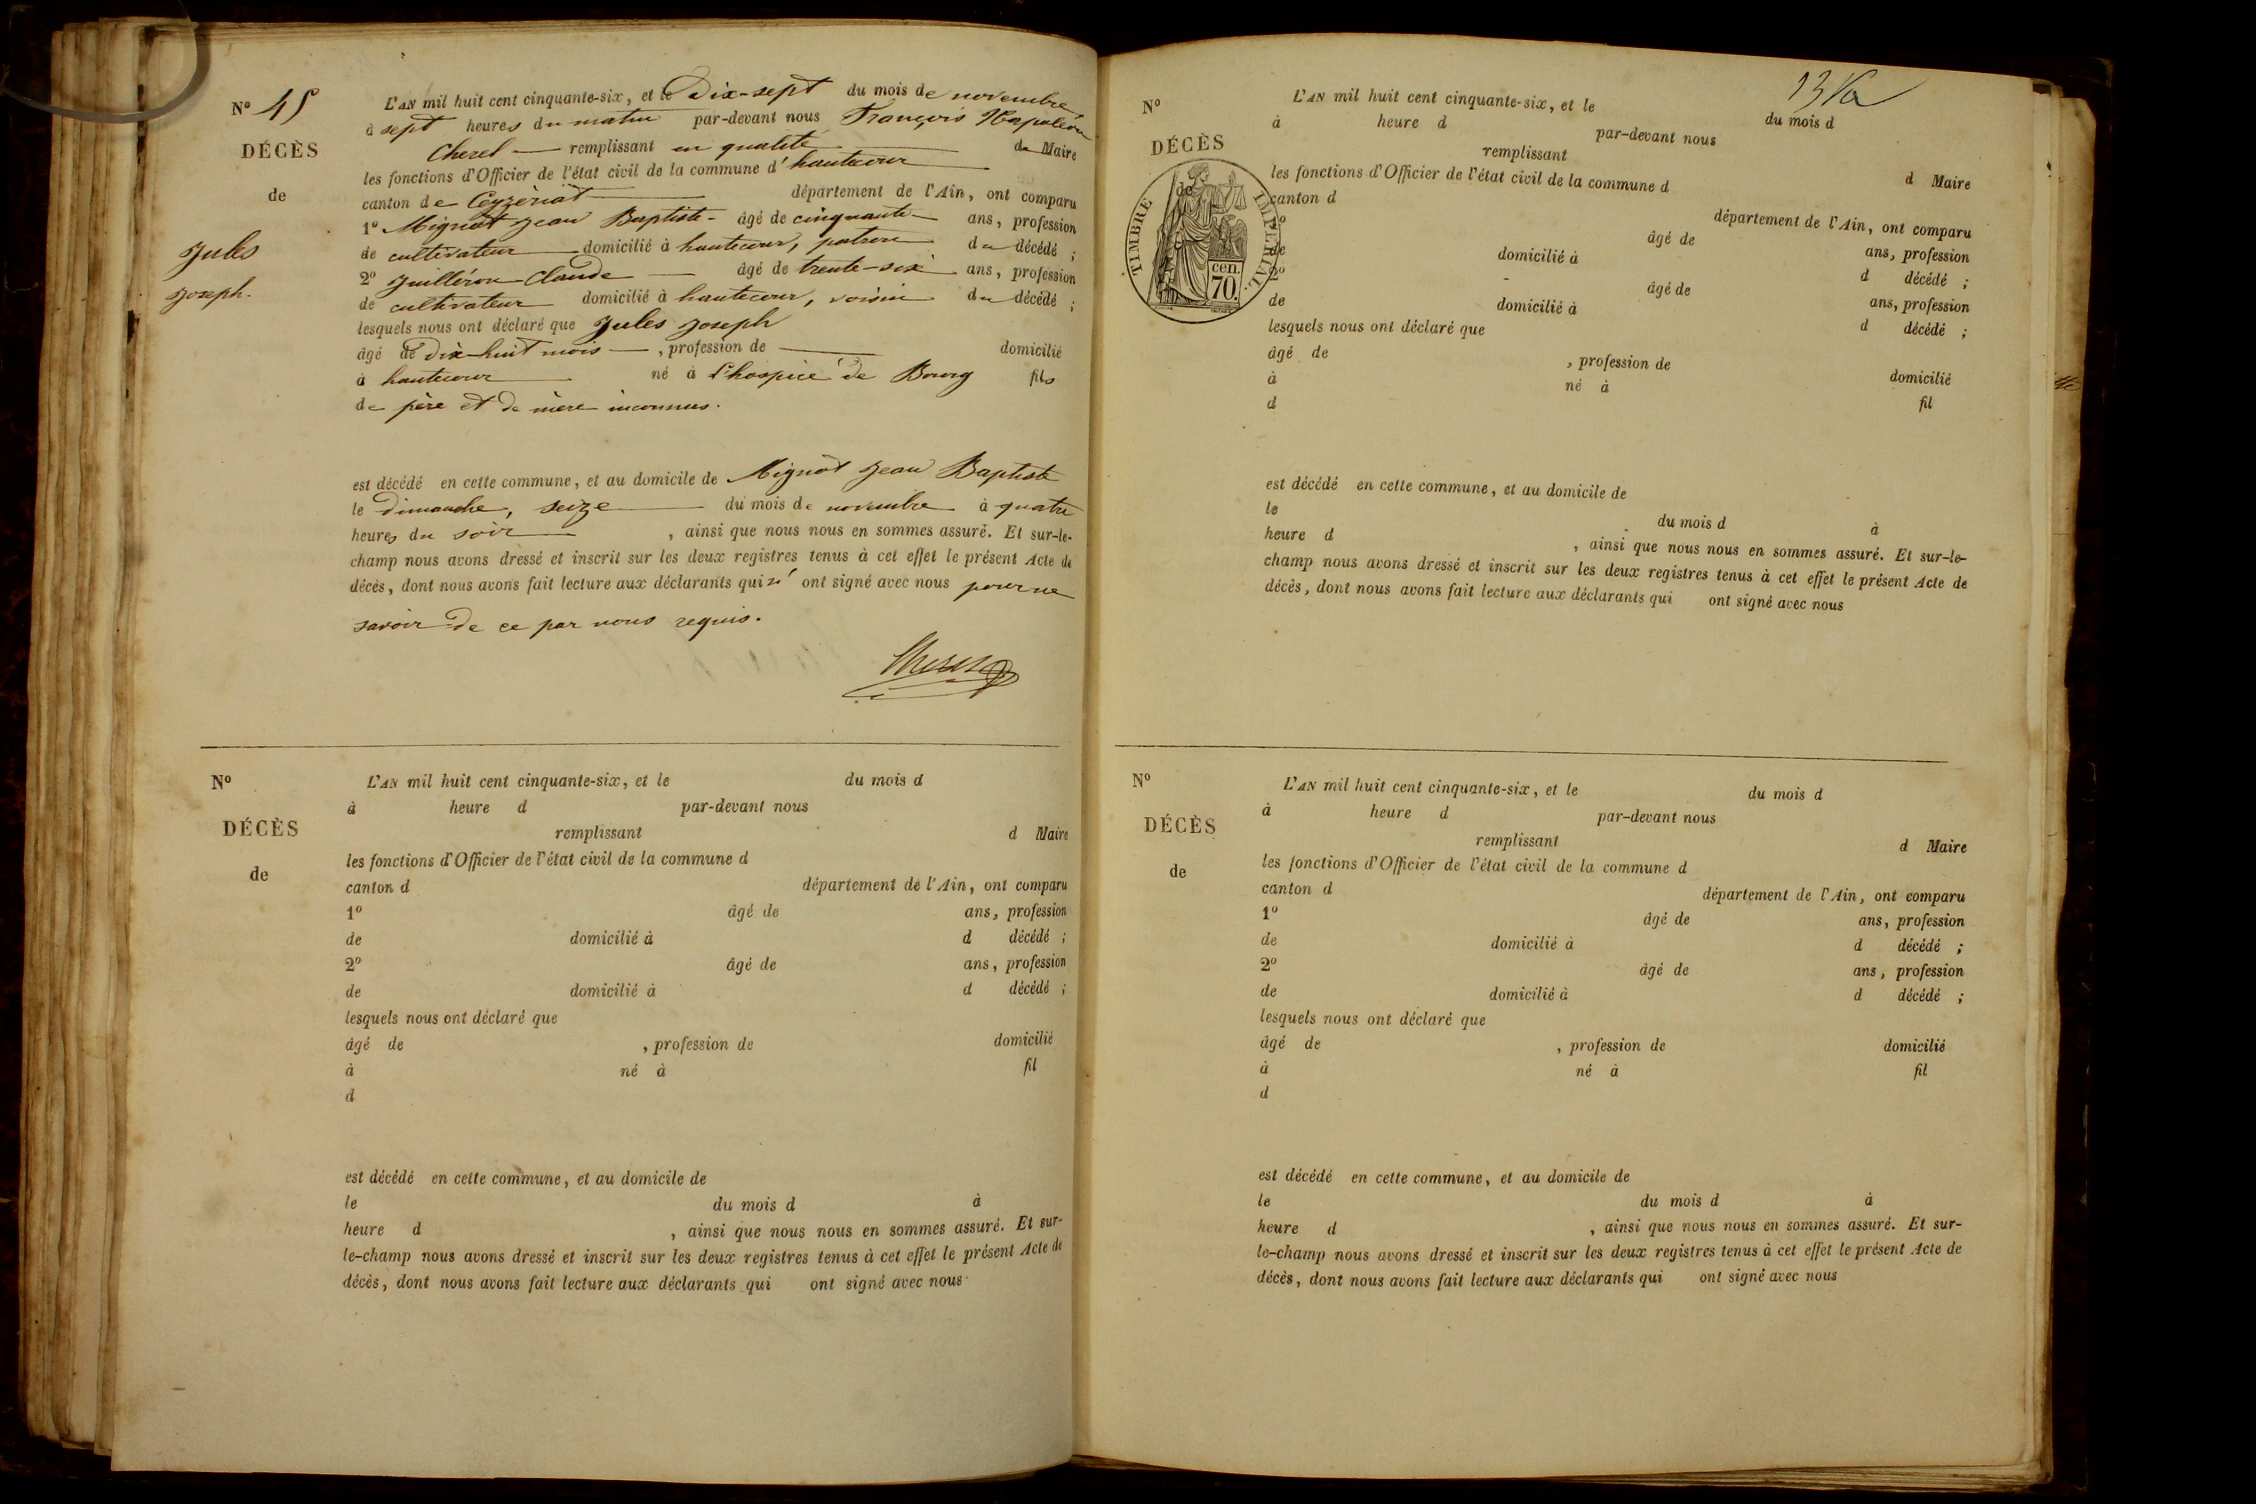 N° 45
DÉCÈS
de
Jules
Joseph.
L'AN mil huit cent cinquante-six, et le Dix-sept du mois de novembre
à sept heures du matin par-devant nous François Napoléon
Chesel remplissant en qualité de Maire
les fonctions d'Officier de l'état civil de la commune d'hautecour
canton de Ceyzériat département de l'Ain, ont comparu
1° Mignot Jean Baptiste - âgé de cinquante ans, profession
de cultivateur domicilié à hautecour, patron du décédé ;
2° Juilléron Claude âgé de trente-six ans, profession
de cultivateur domicilié à hautecour, voisin du décédé ;
lesquels nous ont déclaré que Jules Joseph
âgé de dix-huit mois , profession de domicilié
à hautecour né à l'hospice de Bourg fils
de père et de mère inconnus.
est décédé en cette commune, et au domicile de Mignot Jean Baptiste
le dimanche, seize du mois de novembre à quatre
heures du soir , ainsi que nous nous en sommes assuré. Et sur-le-
champ nous avons dressé et inscrit sur les deux registres tenus à cet effet le présent Acte de
décès, dont nous avons fait lecture aux déclarants qui n' ont signé avec nous pour ne
savoir de ce par nous requis.
Chesel
N°
DÉCÈS
de
L'AN mil huit cent cinquante-six, et le du mois d
à heure d par-devant nous
remplissant d Maire
les fonctions d'Officier de l'état civil de la commune d
canton d département de l'Ain, ont comparu
1° âgé de ans, profession
de domicilié à d décédé ;
2° âgé de ans, profession
de domicilié à d décédé ;
lesquels nous ont déclaré que
âgé de , profession de domicilié
à né à fil
d
est décédé en cette commune, et au domicile de
le du mois d à
heure d , ainsi que nous nous en sommes assuré. Et sur-
le-champ nous avons dressé et inscrit sur les deux registres tenus à cet effet le présent Acte de
décès, dont nous avons fait lecture aux déclarants qui ont signé avec nous
N°
DÉCÈS
de
TIMBRE IMPÉRIAL
cen.
70.
L'AN mil huit cent cinquante-six, et le du mois d
à heure d par-devant nous
remplissant d Maire
les fonctions d'Officier de l'état civil de la commune d
canton d département de l'Ain, ont comparu
1° âgé de ans, profession
de domicilié à d décédé ;
2° âgé de ans, profession
de domicilié à d décédé ;
lesquels nous ont déclaré que
âgé de , profession de domicilié
à né à fil
d
est décédé en cette commune, et au domicile de
le du mois d à
heure d , ainsi que nous nous en sommes assuré. Et sur-le-
champ nous avons dressé et inscrit sur les deux registres tenus à cet effet le présent Acte de
décès, dont nous avons fait lecture aux déclarants qui ont signé avec nous
N°
DÉCÈS
de
L'AN mil huit cent cinquante-six, et le du mois d
à heure d par-devant nous
remplissant d Maire
les fonctions d'Officier de l'état civil de la commune d
canton d département de l'Ain, ont comparu
1° âgé de ans, profession
de domicilié à d décédé ;
2° âgé de ans, profession
de domicilié à d décédé ;
lesquels nous ont déclaré que
âgé de , profession de domicilié
à né à fil
d
est décédé en cette commune, et au domicile de
le du mois d à
heure d , ainsi que nous nous en sommes assuré. Et sur-
le-champ nous avons dressé et inscrit sur les deux registres tenus à cet effet le présent Acte de
décès, dont nous avons fait lecture aux déclarants qui ont signé avec nous